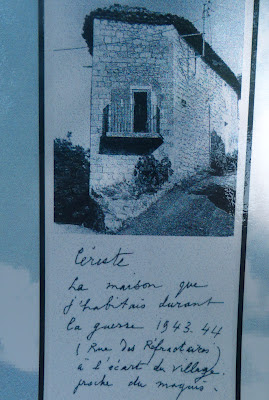 Céreste
La maison que
j'habitais durant
la guerre 1943.44
(Rue des Réfractaires)
à l'écart du village.
proche du maquis.